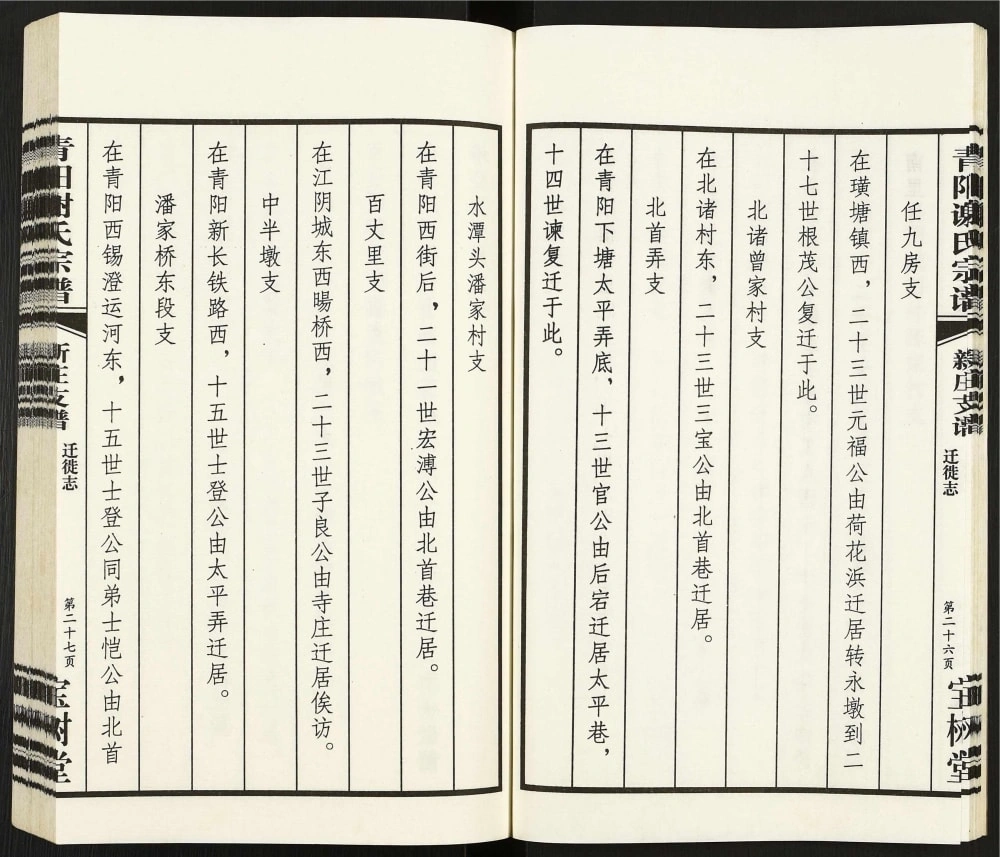 青阳谢氏宗谱
新庄支谱
迁徙志
第二十六页
宝树堂
任九房支
在璜塘镇西，二十三世元福公由荷花浜迁居转永墩到二
十七世根茂公复迁于此。
北诸曾家村支
在北诸村东，二十三世三宝公由北首巷迁居。
北首弄支
在青阳下塘太平弄底，十三世官公由后宕迁居太平巷，
十四世谏复迁于此。
水潭头潘家村支
在青阳西街后，二十一世宏溥公由北首巷迁居。
百丈里支
在江阴城东西暘桥西，二十三世子良公由寺庄迁居俟访。
中半墩支
在青阳新长铁路西，十五世士登公由太平弄迁居。
潘家桥东段支
在青阳西锡澄运河东，十五世士登公同弟士恺公由北首
青阳谢氏宗谱
新庄支谱
迁徙志
第二十七页
宝树堂